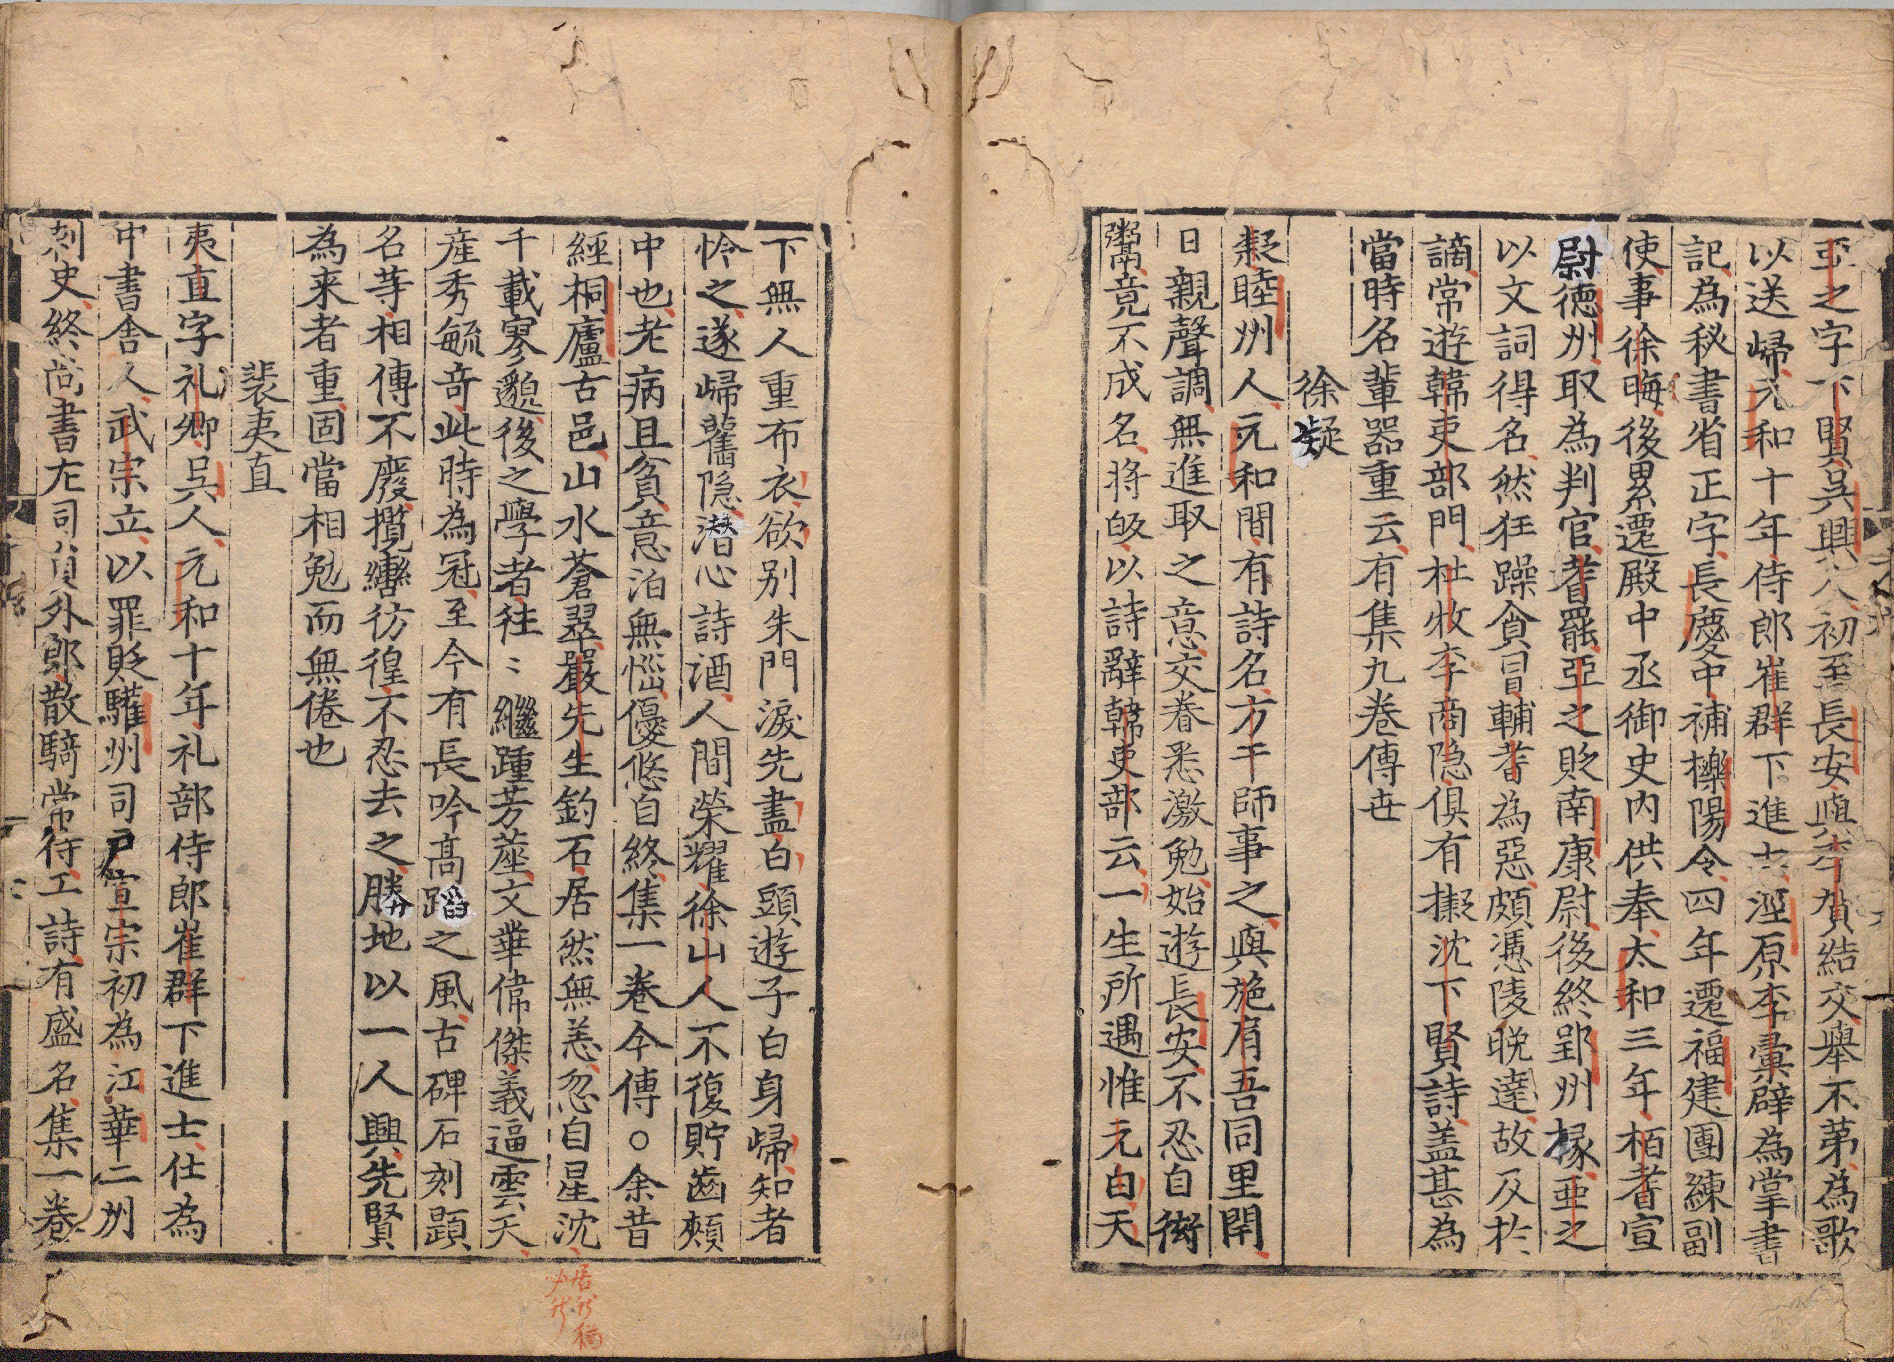 亞之字下賢吳興人初至長安與李賀結交舉不第為歌
以送歸元和十年侍郎崔群下進士涇原李彙辟為掌書
記為秘書省正字長慶中補櫟陽令四年遷福建團練副
使事徐晦後累遷殿中丞御史內供奉太和三年栢耆宣
尉德州取為判官耆罷亞之貶南康尉後終郢州掾亞之
以文詞得名然狂躁貪冒輔耆為惡頗憑陵晚達故及於
謫常遊韓吏部門杜牧李商隐俱有擬沈下賢詩盖甚為
當時名輩器重云有集九卷傳世
徐凝
凝睦州人元和間有詩名方干師事之與施肩吾同里閈
日親聲調無進取之意交眷悉激勉始遊長安不忍自衒
鬻竟不成名將皈以詩辭韓吏部云一生所遇惟元白天
下無人重布衣欲别朱門淚先盡白頭遊子白身歸知者
怜之遂歸舊隐潜心詩酒人間榮耀徐山人不復貯齒頰
中也老病且貧意泊無惱優悠自終集一卷今傳○余昔
經桐廬古邑山水蒼翠嚴先生釣石居然無恙忽自星沈
千載寥邈後之學者徃〻繼踵芳塵文華偉傑義逼雲天
産秀毓竒此時為冠至今有長吟髙蹈之風古碑石刻題
名䓁相傳不廢攬轡彷徨不忍去之勝地以一人興先賢
為来者重固當相勉而無倦也
裴夷直
夷直字礼卿吳人元和十年礼部侍郎崔群下進士仕為
中書舍人武宗立以罪貶驩州司户宣宗初為江華二州
刺史終尚書左司員外郎散騎常侍工詩有盛名集一卷